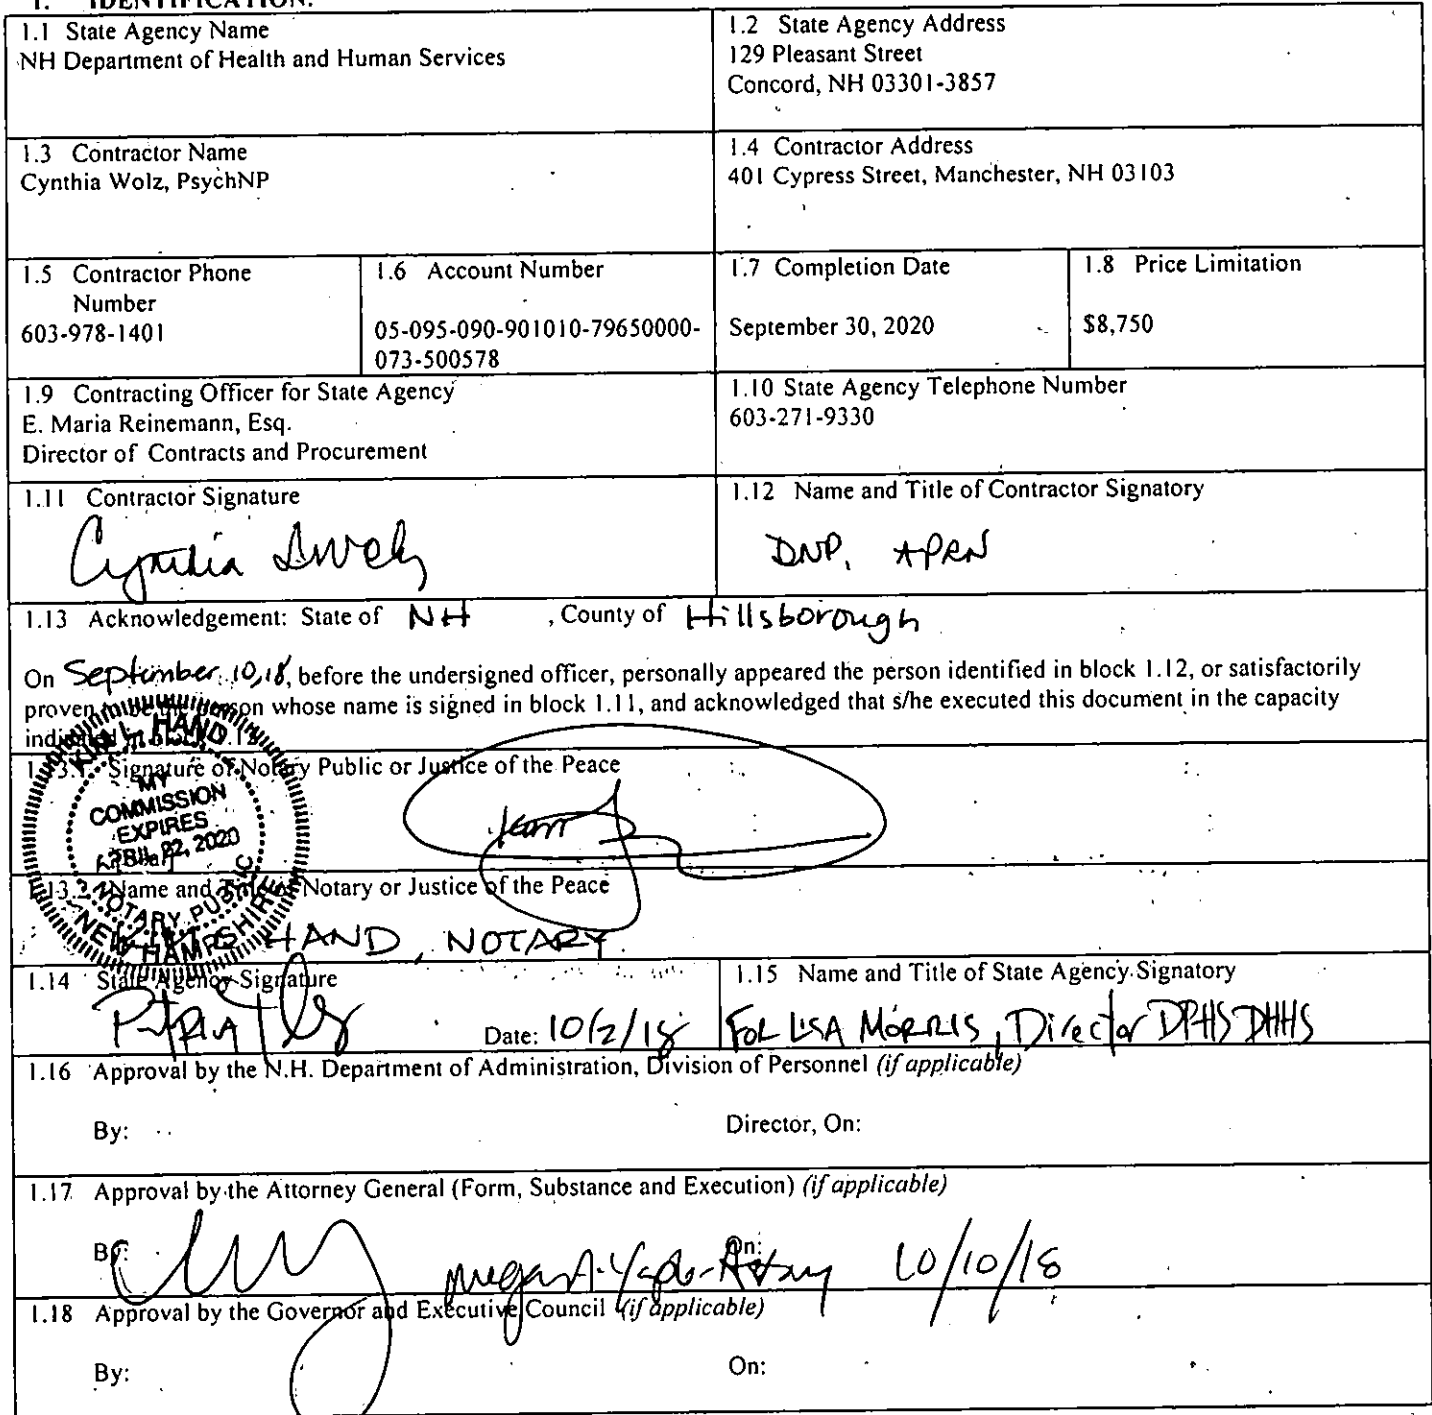 1. IDENTIFICATION.
1.1 State Agency Name
NH Department of Health and Human Services
1.2 State Agency Address
129 Pleasant Street
Concord, NH 03301-3857
1.3 Contractor Name
Cynthia Wolz, PsychNP
1.4 Contractor Address
401 Cypress Street, Manchester, NH 03103
1.5 Contractor Phone
Number
603-978-1401
1.6 Account Number
05-095-090-901010-79650000-
073-500578
1.7 Completion Date
September 30, 2020
1.8 Price Limitation
$8,750
1.9 Contracting Officer for State Agency
E. Maria Reinemann, Esq.
Director of Contracts and Procurement
1.10 State Agency Telephone Number
603-271-9330
1.11 Contractor Signature
Cynthia
1.12 Name and Title of Contractor Signatory
DNP, APRN
1.13 Acknowledgement: State of NH , County of Hillsborough
On September 10, 18, before the undersigned officer, personally appeared the person identified in block 1.12, or satisfactorily
proven to be the person whose name is signed in block 1.11, and acknowledged that s/he executed this document in the capacity
indicated in block 1.12.
1.13.1 Signature of Notary Public or Justice of the Peace
KIM L. HAND
MY
COMMISSION
EXPIRES
APRIL 22, 2020
NOTARY PUBLIC
NEW HAMPSHIRE
1.13.2 Name and Title of Notary or Justice of the Peace
HAND, NOTARY
1.14 State Agency Signature
Date: 10/2/18
1.15 Name and Title of State Agency Signatory
FOR LISA MORRIS, Director DPHS DHHS
1.16 Approval by the N.H. Department of Administration, Division of Personnel (if applicable)
By:
Director, On:
1.17 Approval by the Attorney General (Form, Substance and Execution) (if applicable)
By:
On:
10/10/18
1.18 Approval by the Governor and Executive Council (if applicable)
By:
On: